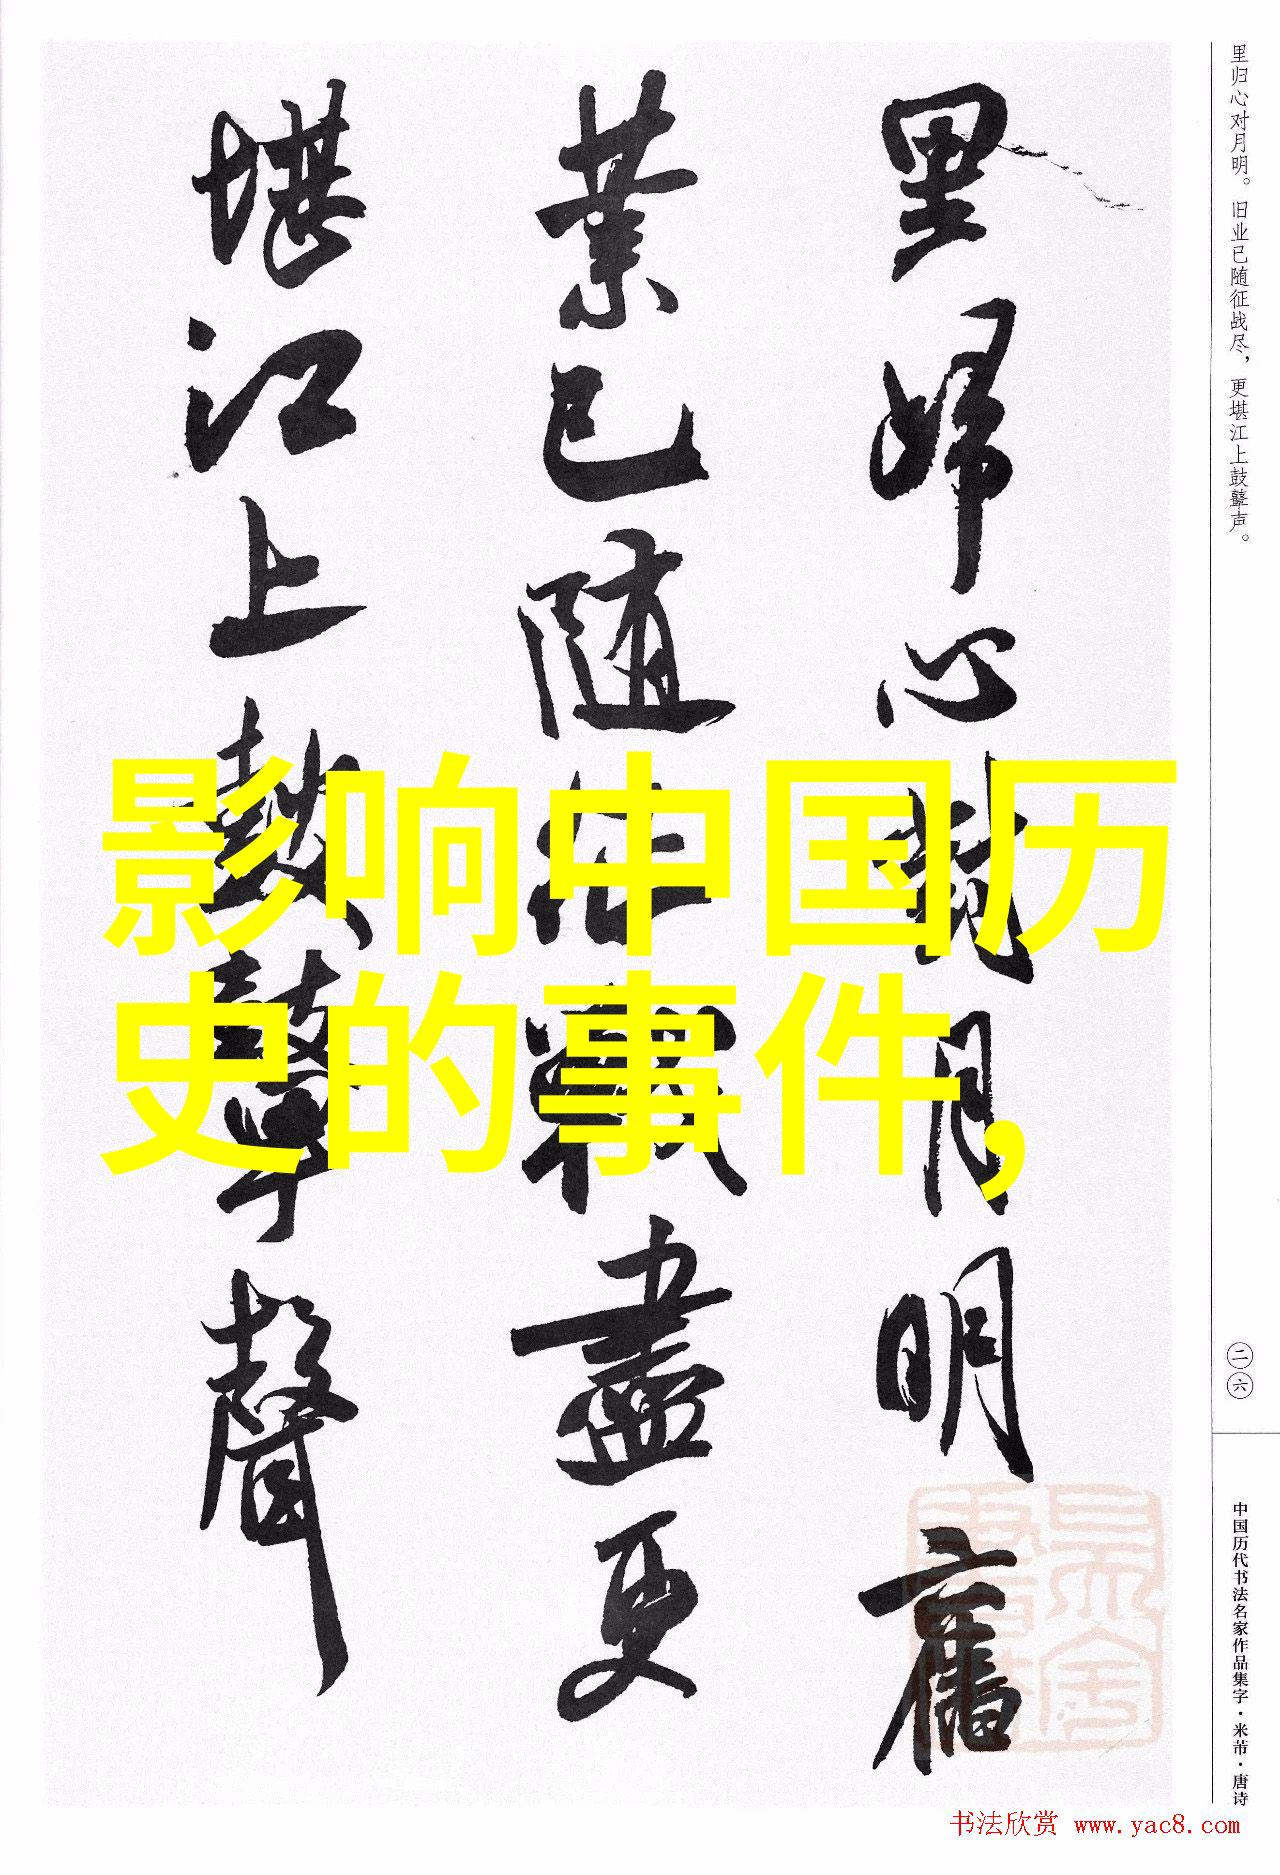 里归心对月明。旧业已随征战尽，更堪江上鼓鼙声。
里歸心對月明舊
業已隨征戰盡更
堪江上鼓鼙聲
影响中国历
史的事件，
二六
中国历代书法名家作品集字·米芾·唐诗
书法欣赏 www.yac8.com